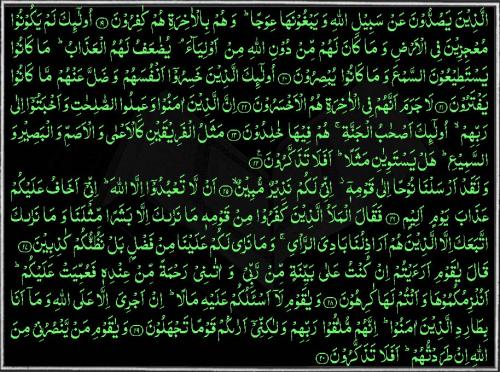 الَّذِيْنَ يَصُدُّوْنَ عَنْ سَبِيْلِ اللّٰهِ وَيَبْغُوْنَهَا عِوَجًا ؕ وَهُمْ بِالْاٰخِرَةِ هُمْ كٰفِرُوْنَ ﴿۱۹﴾ اُولٰٓئِكَ لَمْ يَكُوْنُوْا
مُعْجِزِيْنَ فِي الْاَرْضِ وَمَا كَانَ لَهُمْ مِّنْ دُوْنِ اللّٰهِ مِنْ اَوْلِيَآءَ ۘ يُضٰعَفُ لَهُمُ الْعَذَابُ ؕ مَا كَانُوْا
يَسْتَطِيْعُوْنَ السَّمْعَ وَمَا كَانُوْا يُبْصِرُوْنَ ﴿۲۰﴾ اُولٰٓئِكَ الَّذِيْنَ خَسِرُوْۤا اَنْفُسَهُمْ وَضَلَّ عَنْهُمْ مَّا كَانُوْا
يَفْتَرُوْنَ ﴿۲۱﴾ لَا جَرَمَ اَنَّهُمْ فِي الْاٰخِرَةِ هُمُ الْاَخْسَرُوْنَ ﴿۲۲﴾ اِنَّ الَّذِيْنَ اٰمَنُوْا وَعَمِلُوا الصّٰلِحٰتِ وَاَخْبَتُوْۤا اِلٰى
رَبِّهِمْ ۙ اُولٰٓئِكَ اَصْحٰبُ الْجَنَّةِ ۚ هُمْ فِيْهَا خٰلِدُوْنَ ﴿۲۳﴾ مَثَلُ الْفَرِيْقَيْنِ كَالْاَعْمٰى وَالْاَصَمِّ وَالْبَصِيْرِ وَ
السَّمِيْعِ ؕ هَلْ يَسْتَوِيٰنِ مَثَلًا ؕ اَفَلَا تَذَكَّرُوْنَ ﴿۲۴﴾
وَلَقَدْ اَرْسَلْنَا نُوْحًا اِلٰى قَوْمِهٖۤ ۫ اِنِّيْ لَكُمْ نَذِيْرٌ مُّبِيْنٌ ﴿۲۵﴾ اَنْ لَّا تَعْبُدُوْۤا اِلَّا اللّٰهَ ؕ اِنِّيْۤ اَخَافُ عَلَيْكُمْ
عَذَابَ يَوْمٍ اَلِيْمٍ ﴿۲۶﴾ فَقَالَ الْمَلَاُ الَّذِيْنَ كَفَرُوْا مِنْ قَوْمِهٖ مَا نَرٰىكَ اِلَّا بَشَرًا مِّثْلَنَا وَمَا نَرٰىكَ
اتَّبَعَكَ اِلَّا الَّذِيْنَ هُمْ اَرَاذِلُنَا بَادِيَ الرَّاْيِ ۚ وَمَا نَرٰى لَكُمْ عَلَيْنَا مِنْ فَضْلٍۭ بَلْ نَظُنُّكُمْ كٰذِبِيْنَ ﴿۲۷﴾
قَالَ يٰقَوْمِ اَرَءَيْتُمْ اِنْ كُنْتُ عَلٰى بَيِّنَةٍ مِّنْ رَّبِّيْ وَاٰتٰىنِيْ رَحْمَةً مِّنْ عِنْدِهٖ فَعُمِّيَتْ عَلَيْكُمْ ؕ
اَنُلْزِمُكُمُوْهَا وَاَنْتُمْ لَهَا كٰرِهُوْنَ ﴿۲۸﴾ وَيٰقَوْمِ لَاۤ اَسْـَٔلُكُمْ عَلَيْهِ مَالًا ؕ اِنْ اَجْرِيَ اِلَّا عَلَى اللّٰهِ وَمَاۤ اَنَا
بِطَارِدِ الَّذِيْنَ اٰمَنُوْا ؕ اِنَّهُمْ مُّلٰقُوْا رَبِّهِمْ وَلٰكِنِّيْۤ اَرٰىكُمْ قَوْمًا تَجْهَلُوْنَ ﴿۲۹﴾ وَيٰقَوْمِ مَنْ يَّنْصُرُنِيْ مِنَ
اللّٰهِ اِنْ طَرَدْتُّهُمْ ؕ اَفَلَا تَذَكَّرُوْنَ ﴿۳۰﴾